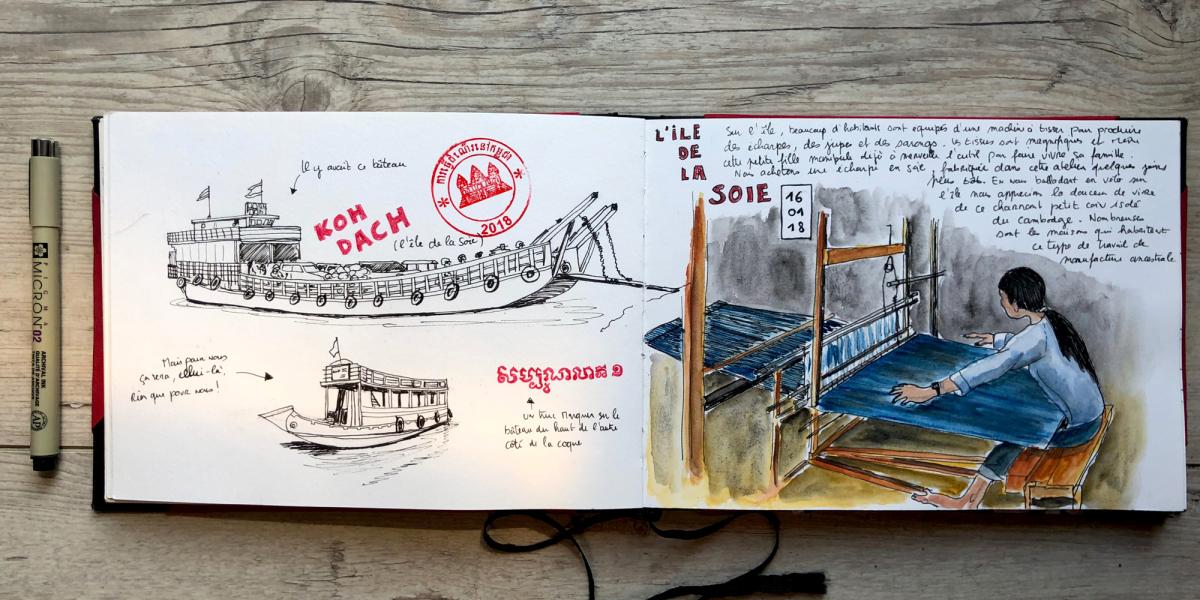 Il y avait ce bâteau
KOH
DACH
(l'île de la Soie)
2018
Mais pour nous
ça sera, celui-là.
Rien que pour nous !
សម្បូណ៌លាភ ១
un truc marqué sur le
bâteau du haut de l'autre
côté de la coque
L'ÎLE
DE
LA
SOIE
16
01
18
Sur l'île, beaucoup d'habitants sont équipés d'une machine à tisser pour produire
des écharpes, des jupes et des sarongs. Les tissus sont magnifiques et
cette petite fille manipule déjà à merveille l'outil pour faire vivre sa famille.
Nous achetons une écharpe en soie fabriquée dans cet atelier quelques jours
plus tôt. En nous balladant en vélo sur
l'île nous apprécions la douceur de vivre
de ce charmant petit coin isolé
du Cambodge. Nombreuses
sont les maisons qui habritent
ce type de travail de
manufacture ancestrale.
SAKURA
MICRON 02
ARCHIVAL INK